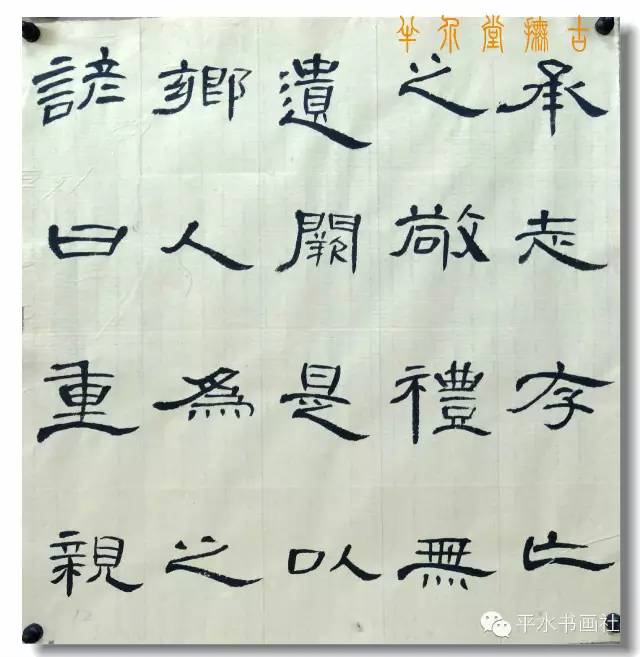 承志存亡
之敬禮無
遺闕是以
鄉人為之
諺曰重親
平水书画社